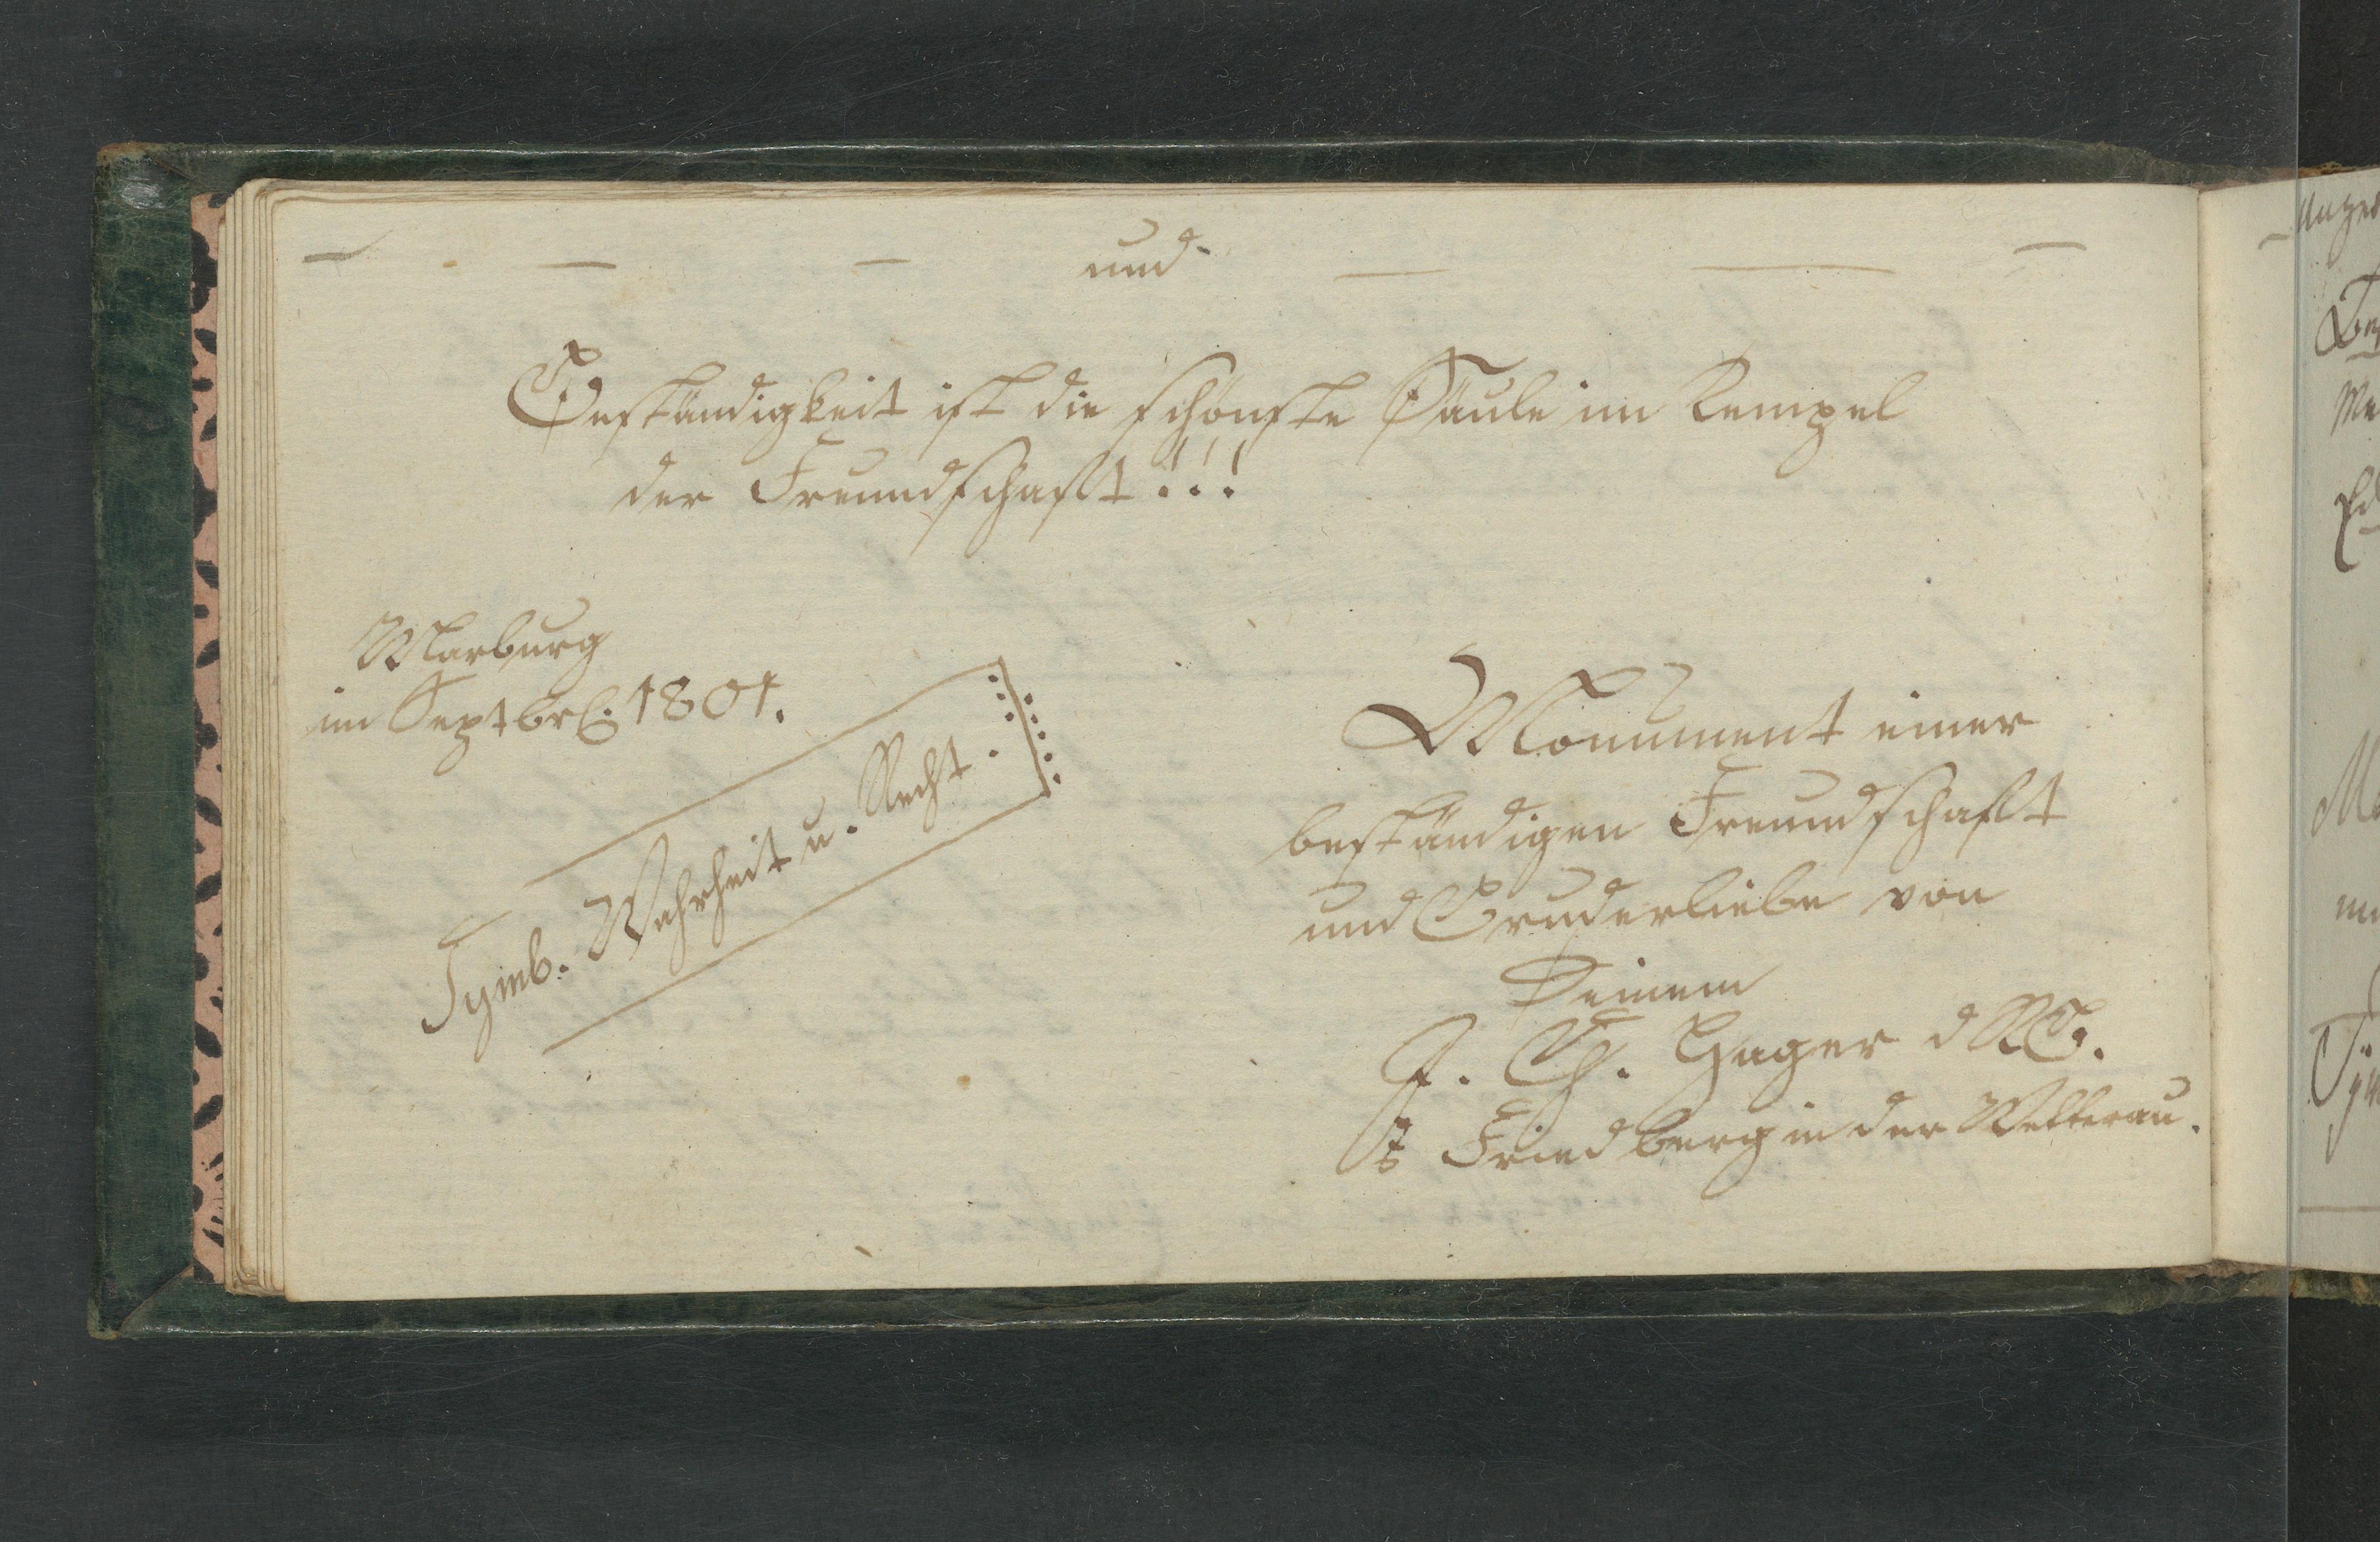 — - — — und — — —
Beständigkeit ist die schönste Säule im Tempel
der Freundschaft!!!
Marburg
im Septbr. 1801.
Symb. Wahrheit u. Recht.
Monument einer
beständigen Freundschaft
und Bruderliebe von
Deinem
J. Ch. Hager d R B.
Friedberg in der Wetterau.